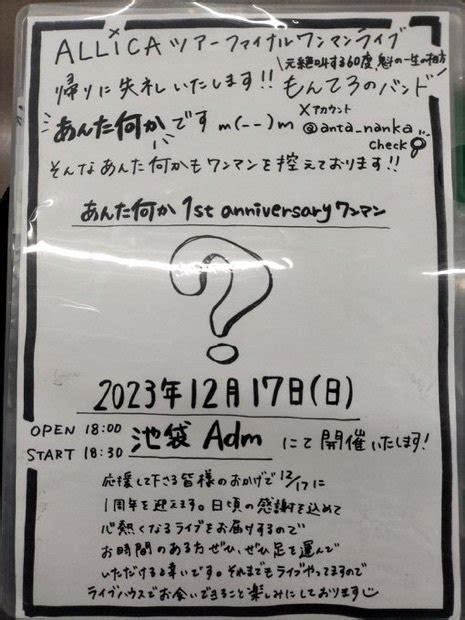 ALLiCAツアーファイナルワンマンライブ
帰りに失礼いたします!!
\元絶叫する60度、魁の一生の相方/
もんてろのバンド
あんた何かです m(--)m
Xアカウント
@anta_nanka
check
そんなあんた何かもワンマンを控えております!!
あんた何か 1st anniversary ワンマン
?
2023年12月17日(日)
OPEN 18:00
START 18:30
池袋 Adm にて開催いたします!
応援して下さる皆様のおかげで12/17に
1周年を迎えます。日頃の感謝を込めて
心熱くなるライブをお届けするので
お時間のある方ぜひ、ぜひ足を運んで
いただけると幸いです。それまでもライブやってますので
ライブハウスでお会いできること楽しみにしております